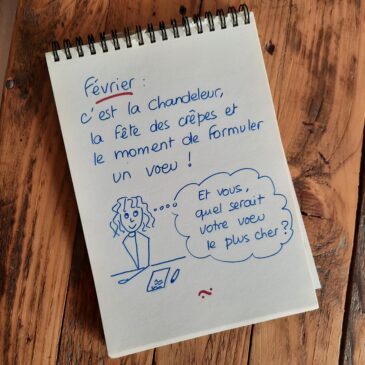 Février :
c'est la chandeleur,
la fête des crêpes et
le moment de formuler
un voeu !
Et vous,
quel serait
votre voeu
le plus cher ?